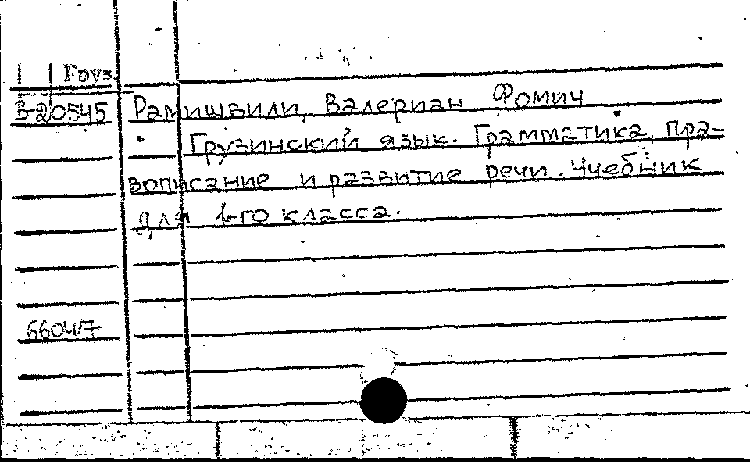 Груз.
В-20545 Рамишвили, Валериан Фомич
Грузинский язык. Грамматика, пра-
вописание и развитие речи. Учебник
для 1-го класса.
66047